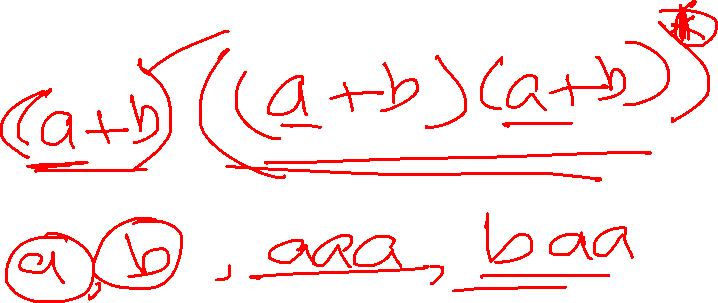 (a+b)((a+b)(a+b))*
a, b, aaa, baa